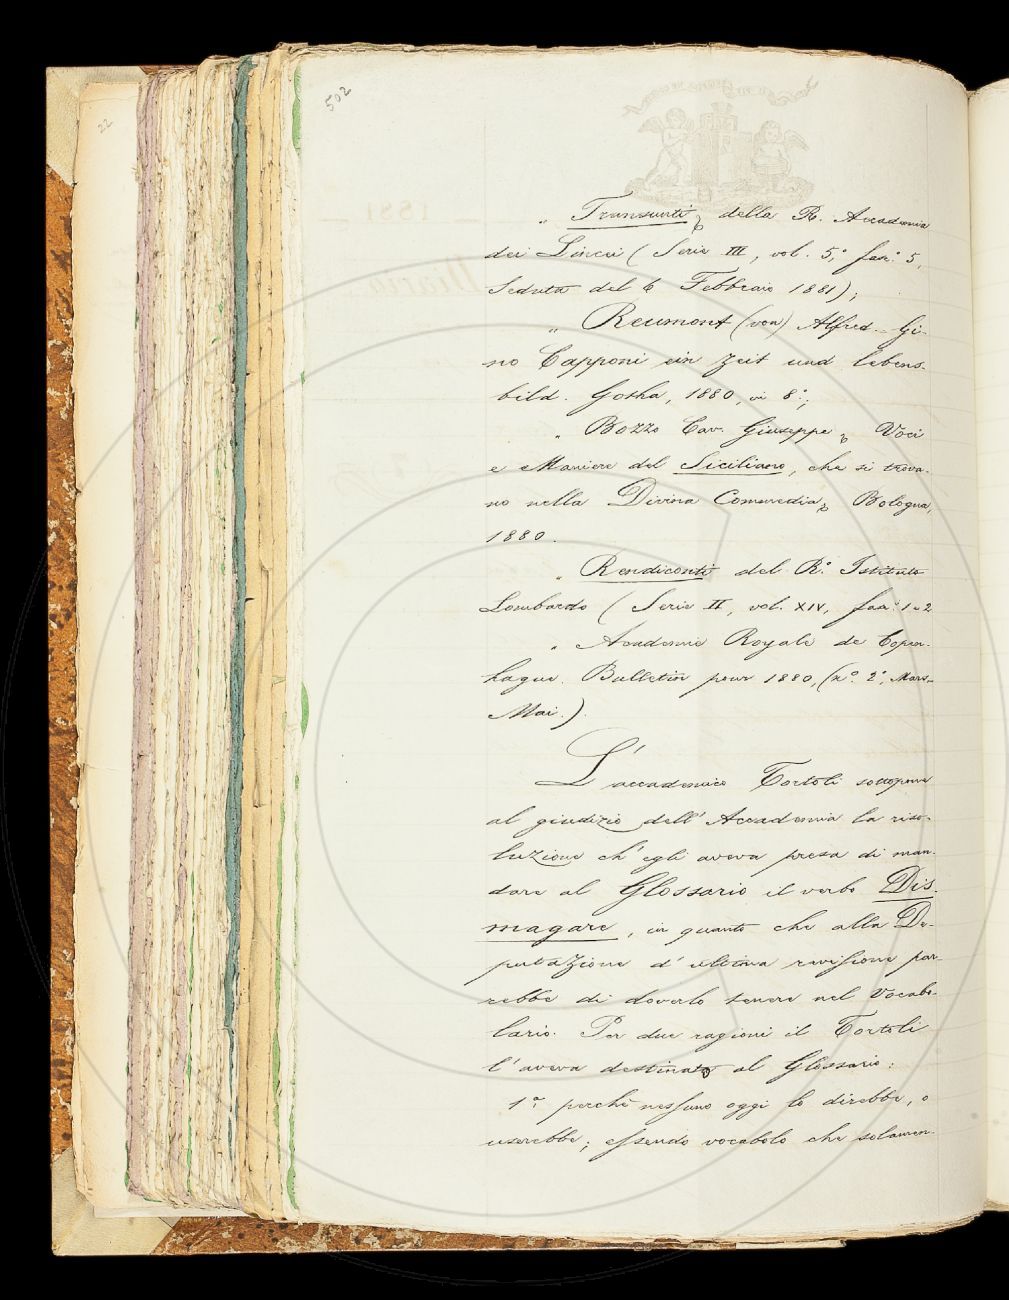 502
22
„ Transunti della R. Accademia
dei Lincei (Serie III, vol. 5,° fasc.° 5,
Seduta del 6 Febbraio 1881);
„ Reumont (von) Alfred - Gi-
no Capponi ein Zeit und lebens-
bild. Gotha, 1880, in 8°;
„ Bozzo Cav. Giuseppe, Voci
e Maniere del Siciliano, che si trova-
no nella Divina Commedia, Bologna,
1880.
„ Rendiconti del R.° Istituto
Lombardo (Serie II, vol. XIV, fasc.° 1 e 2
„ Academie Royale de Copen-
hague. Bulletin pour 1880, (n°. 2°, Mars-
Mai.)
L'accademico Tortoli sottopone
al giudizio dell'Accademia la riso-
luzione ch'egli aveva presa di man-
dare al Glossario il verbo Dis-
magare, in quanto che alla De-
putazione d'ultima revisione par-
rebbe di doverlo tenere nel Vocabo-
lario. Per due ragioni il Tortoli
l'aveva destinato al Glossario:
1ª perchè nessuno oggi lo direbbe, o
userebbe; essendo vocabolo che solamen-